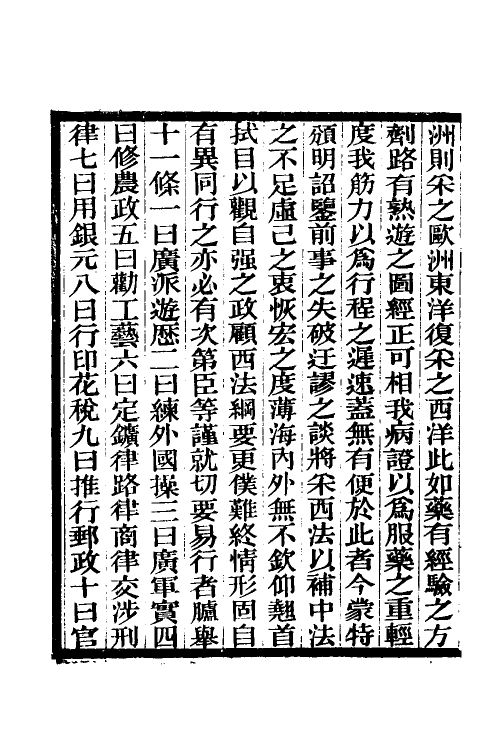 洲則采之歐洲東洋復采之西洋此如藥有經驗之方
劑路有熟遊之圖經正可相我病證以爲服藥之重輕
度我筋力以爲行程之遲速蓋無有便於此者今蒙特
頒明詔鑒前事之失破迂謬之談將采西法以補中法
之不足虛己之衷恢宏之度薄海內外無不欽仰翹首
拭目以觀自强之政顧西法綱要更僕難終情形固自
有異同行之亦必有次第臣等謹就切要易行者臚舉
十一條一曰廣派遊歷二曰練外國操三曰廣軍實四
曰修農政五曰勸工藝六曰定鑛律路律商律交涉刑
律七曰用銀元八曰行印花稅九曰推行郵政十曰官